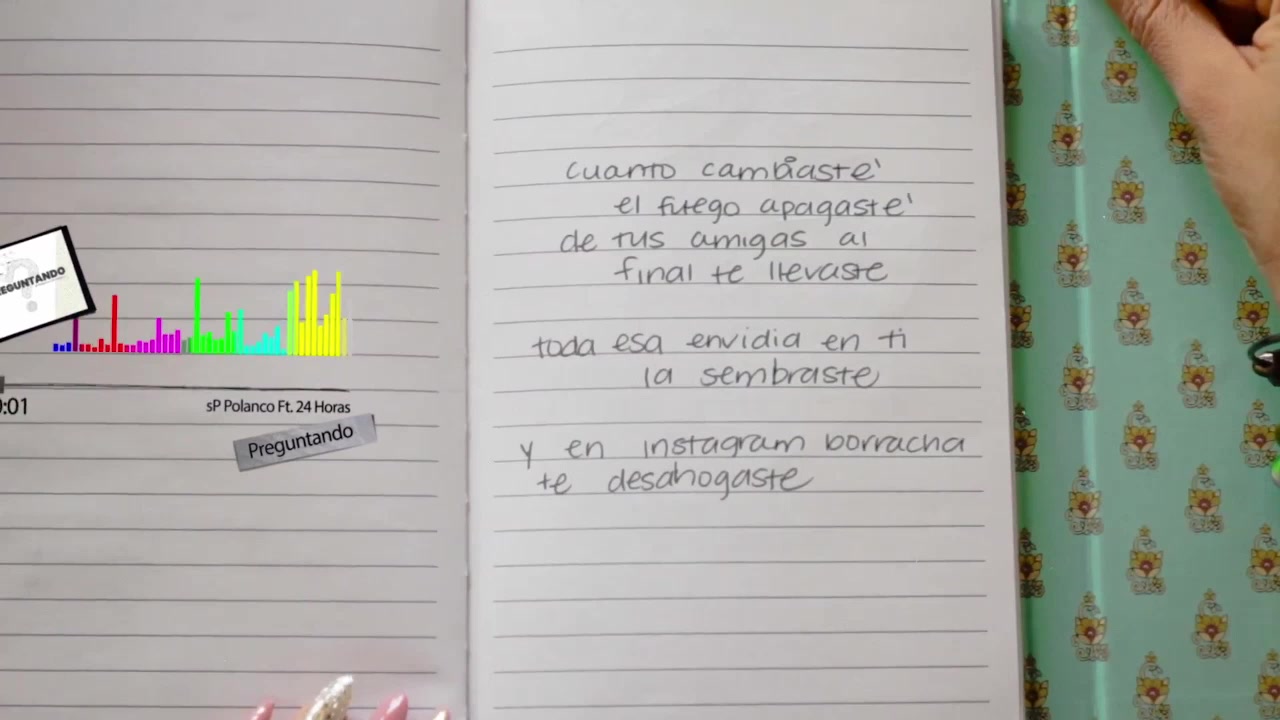 EGUNTANDO
:01
sP Polanco Ft. 24 Horas
Preguntando
cuanto cambiaste'
el fuego apagaste'
de tus amigas al
final te llevaste
toda esa envidia en ti
la sembraste
y en instagram borracha
te desahogaste